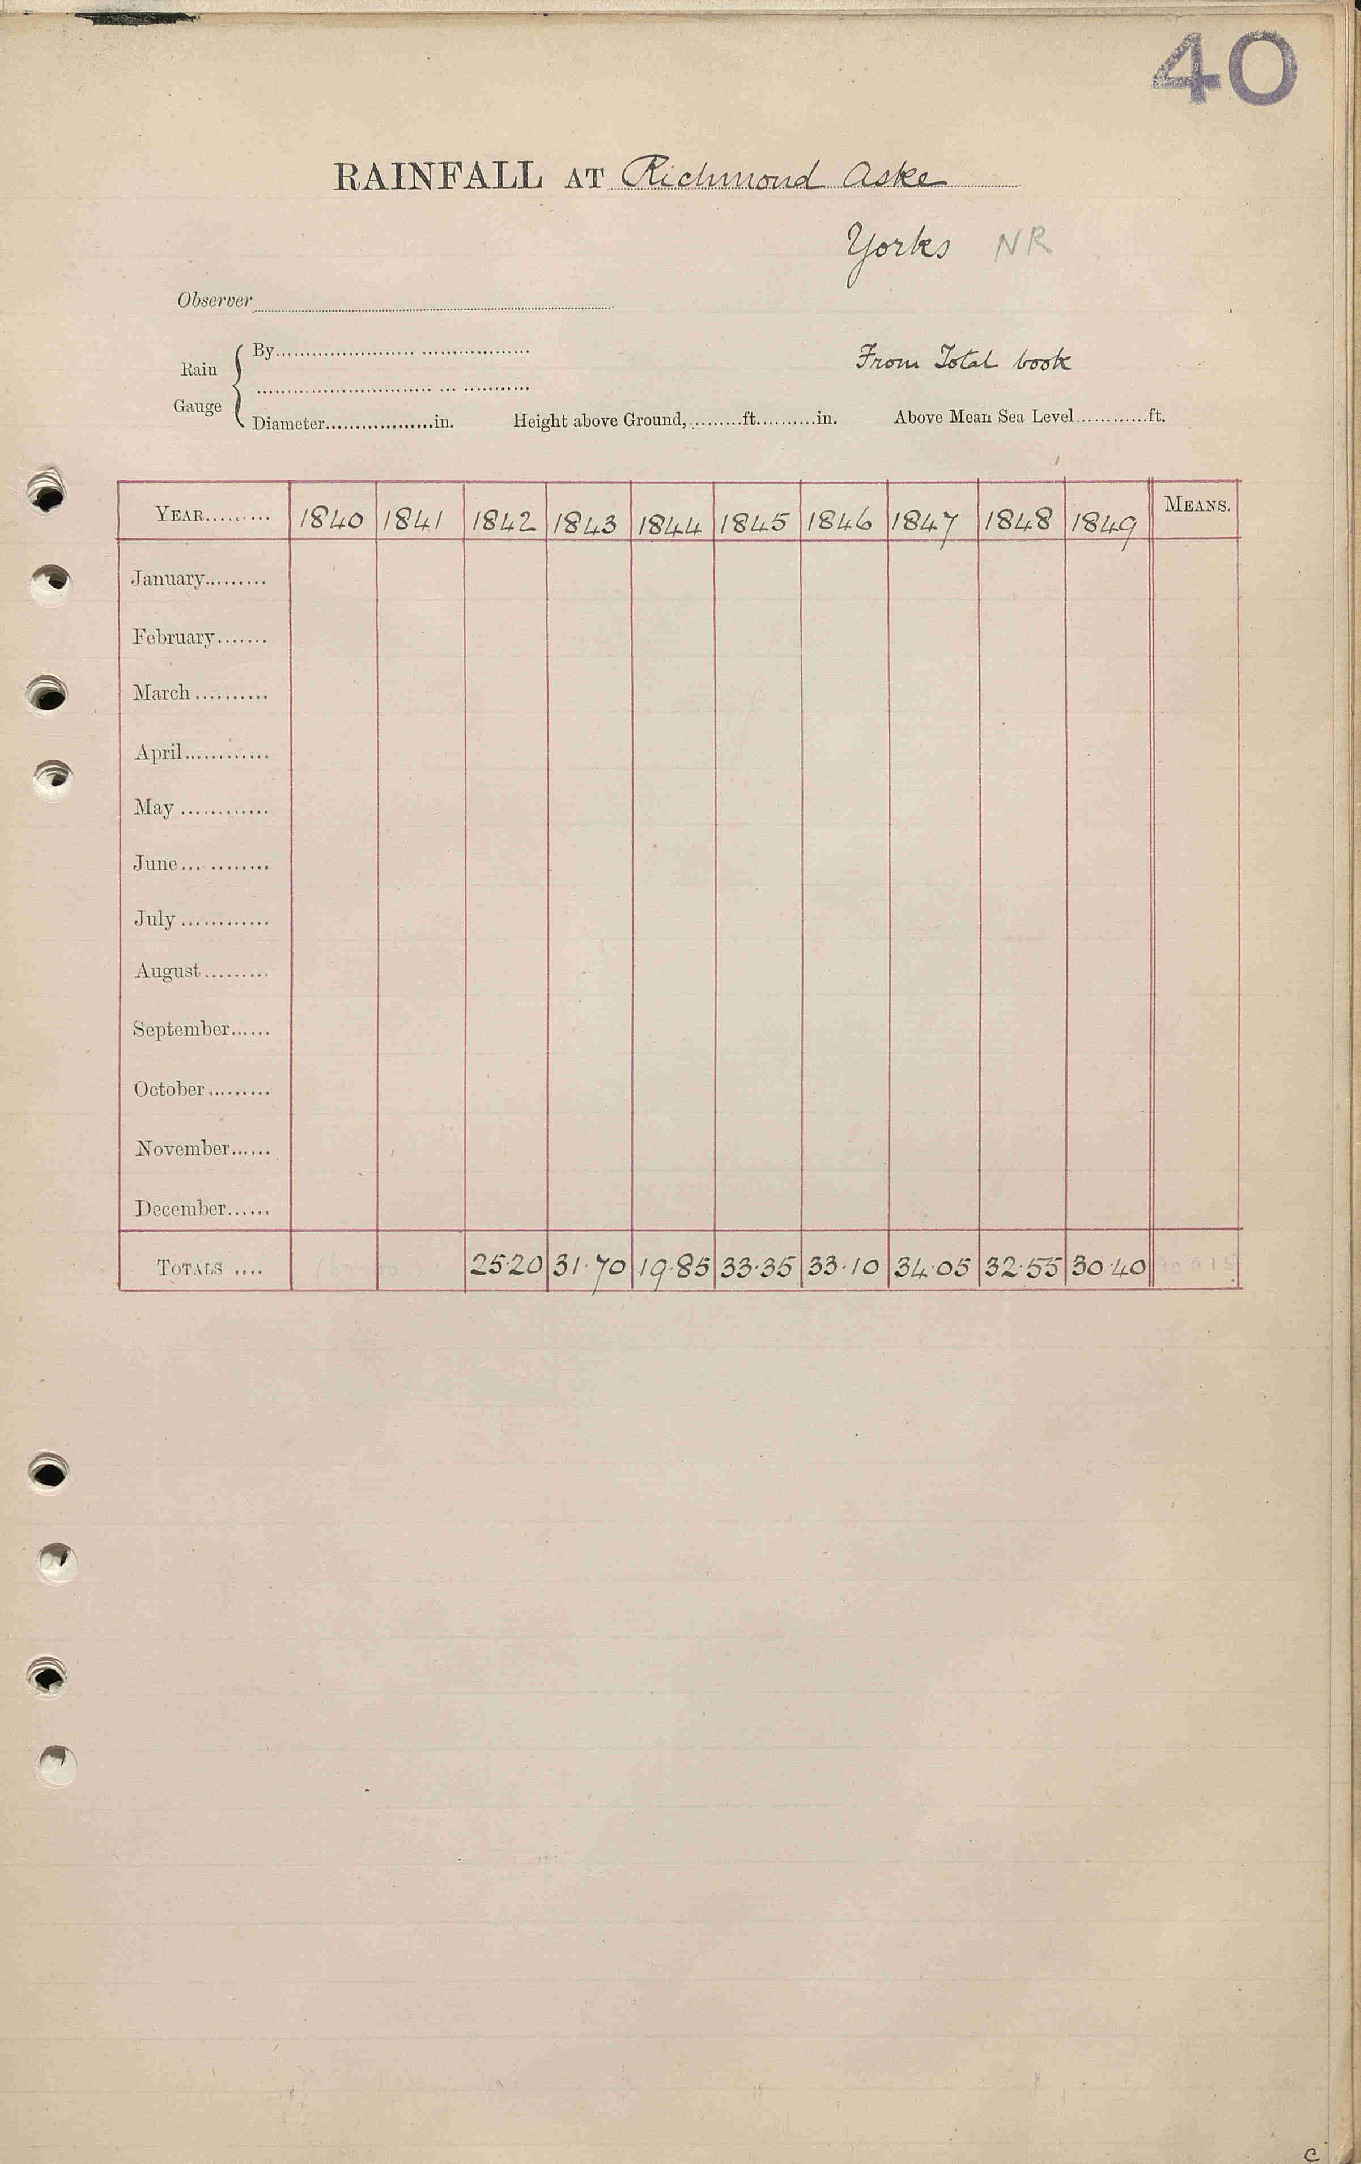 40
RAINFALL AT Richmond Aske
Yorks NR
Observer
Rain Gauge
By
From Total book
Diameter..................in. Height above Ground,.........ft..........in. Above Mean Sea Level............ft.
YEAR......... 1840 1841 1842 1843 1844 1845 1846 1847 1848 1849 MEANS.
January.........
February.......
March ..........
April............
May ............
June............
July ............
August.........
September......
October.........
November......
December......
TOTALS .... 25·20 31·70 19·85 33·35 33·10 34·05 32·55 30·40
c